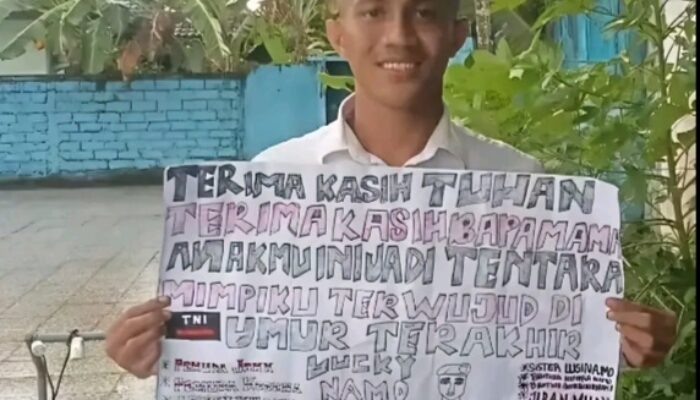 TERIMA KASIH TUHAN
TERIMA KASIH BAPA MAMA
ANAKMU INI JADI TENTARA
MIMPIKU TERWUJUD DI
TNI
UMUR TERAKHIR
LUCKY
NAMO
SISTER LUSI NAMO